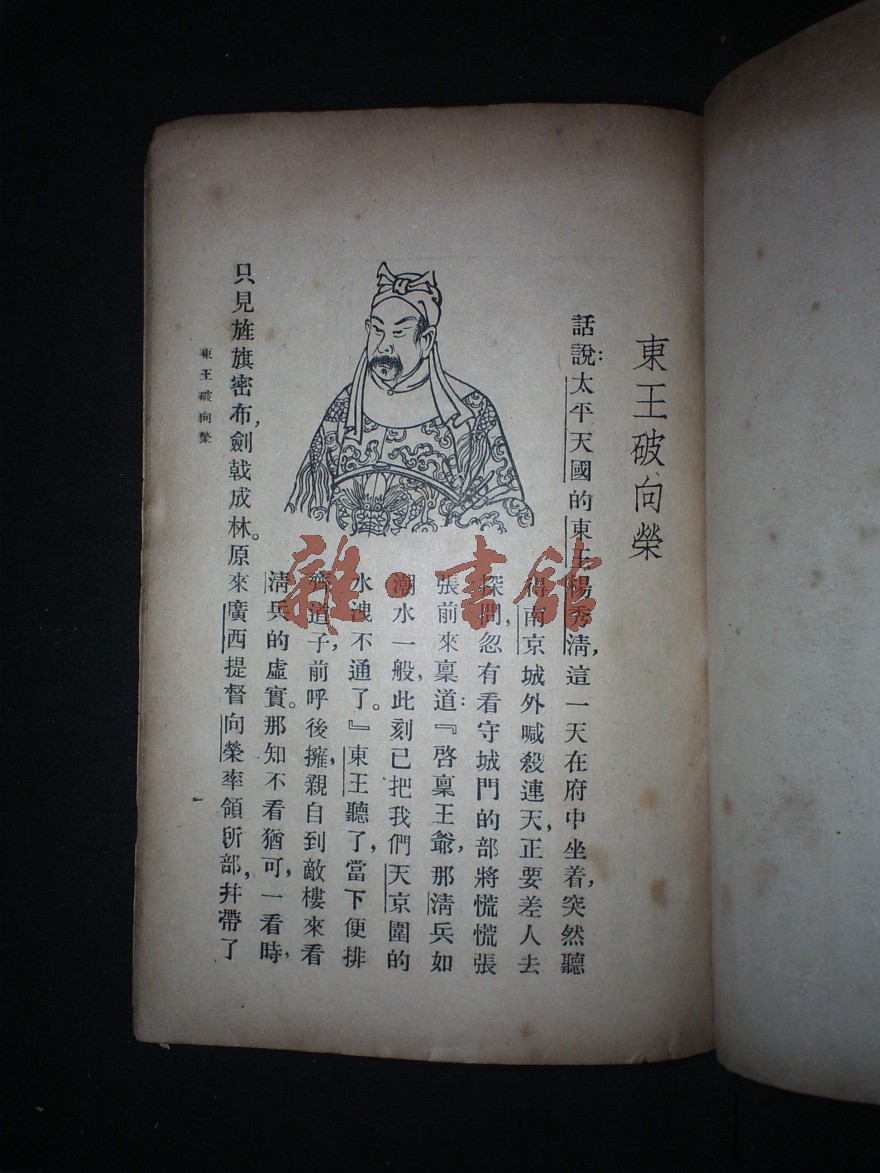 東王破向榮
話說：太平天國的東王楊秀淸，這一天在府中坐着，突然聽
得南京城外喊殺連天，正要差人去
探問，忽有看守城門的部將慌慌張
張前來稟道：『啓稟王爺，那淸兵如
潮水一般，此刻已把我們天京圍的
水洩不通了。』東王聽了，當下便排
齊道子，前呼後擁，親自到敵樓來看
淸兵的虛實。那知不看猶可，一看時，
只見旌旗密布，劍戟成林。原來廣西提督向榮率領所部，幷帶了
東王破向榮
一
雜·書館